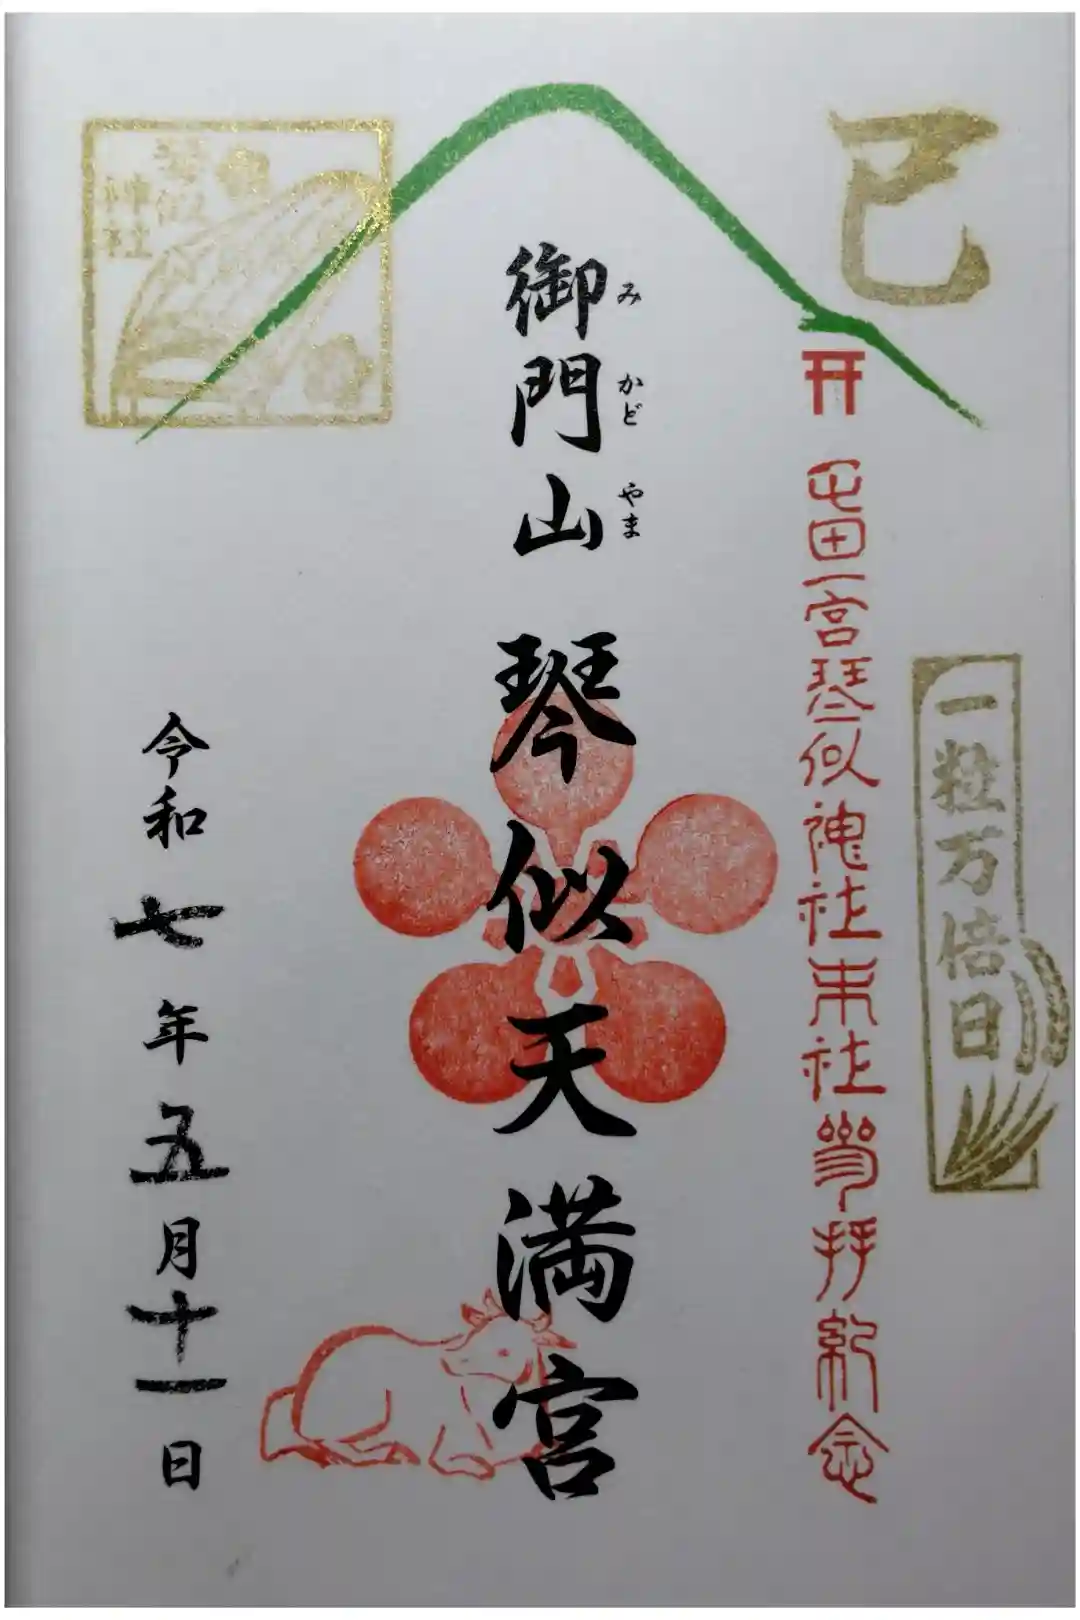 巳
一粒万倍日
屯田一宮琴似神社末社参拝紀念
御門山 琴似天満宮
み かど やま
琴似
神社
令和七年五月十一日